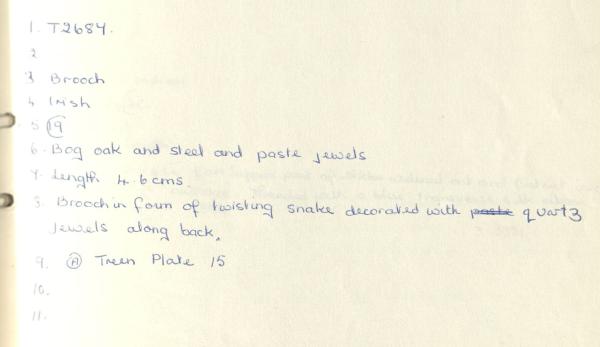 1. T2684.
2
3 Brooch
4 Irish
5 19
6. Bog oak and steel and paste jewels
7. Length 4.6cms
8. Brooch in form of twisting snake decorated with paste quartz
jewels along back.
9. A Treen Plate 15
10.
11.